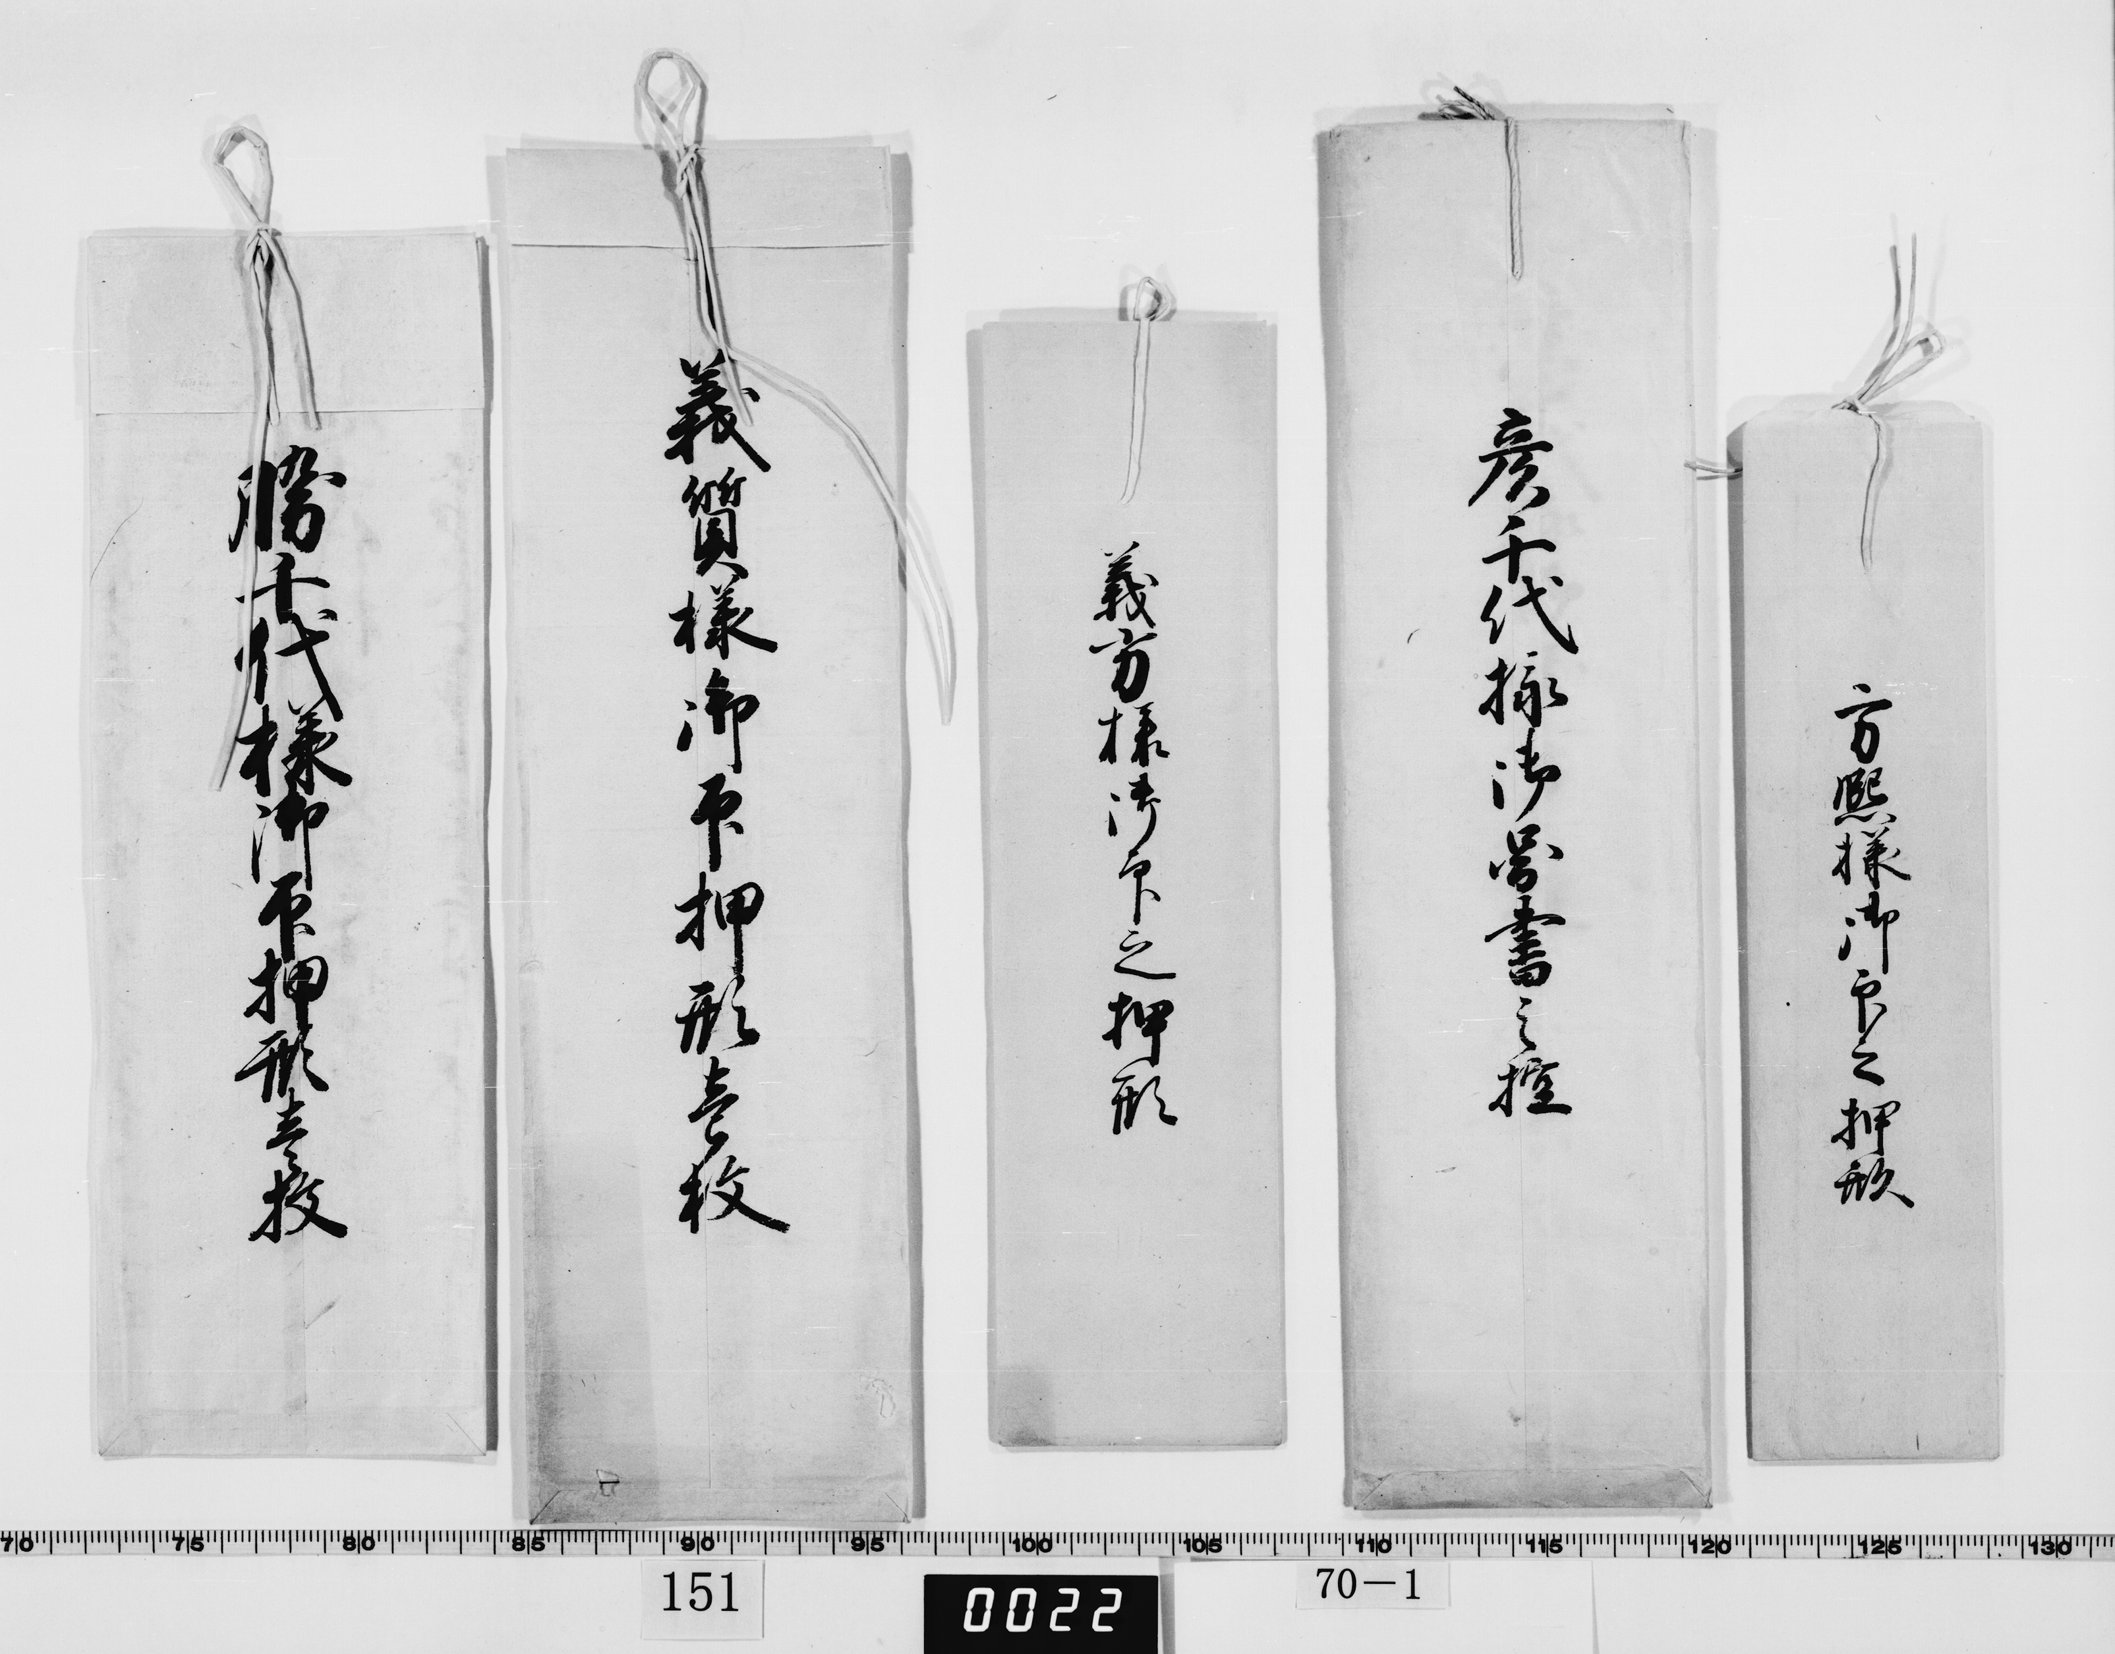 方熙様御印之押形
彦千代様御書之控
義方様御印之押形
義質様御印押形壱枚
勝千代様御印押形壱枚
70 75 80 85 90 95 100 105 110 115 120 125 130
151
0022
70－1